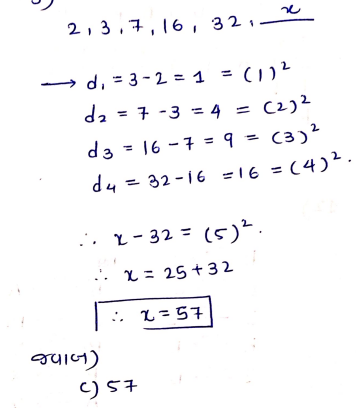 2, 3, 7, 16, 32, x
→ d₁ = 3 - 2 = 1 = (1)²
d₂ = 7 - 3 = 4 = (2)²
d₃ = 16 - 7 = 9 = (3)²
d₄ = 32 - 16 = 16 = (4)².
∴ x - 32 = (5)².
∴ x = 25 + 32
∴ x = 57
જવાબ)
c) 57